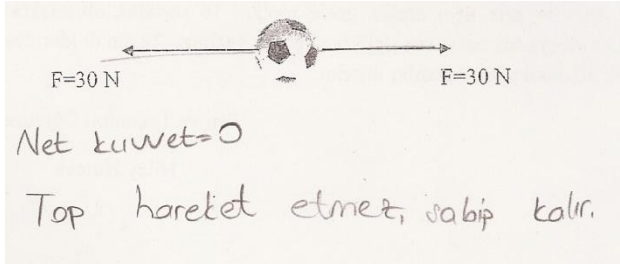 F=30 N F=30 N
Net kuvvet=0
Top hareket etmez, sabip kalır.